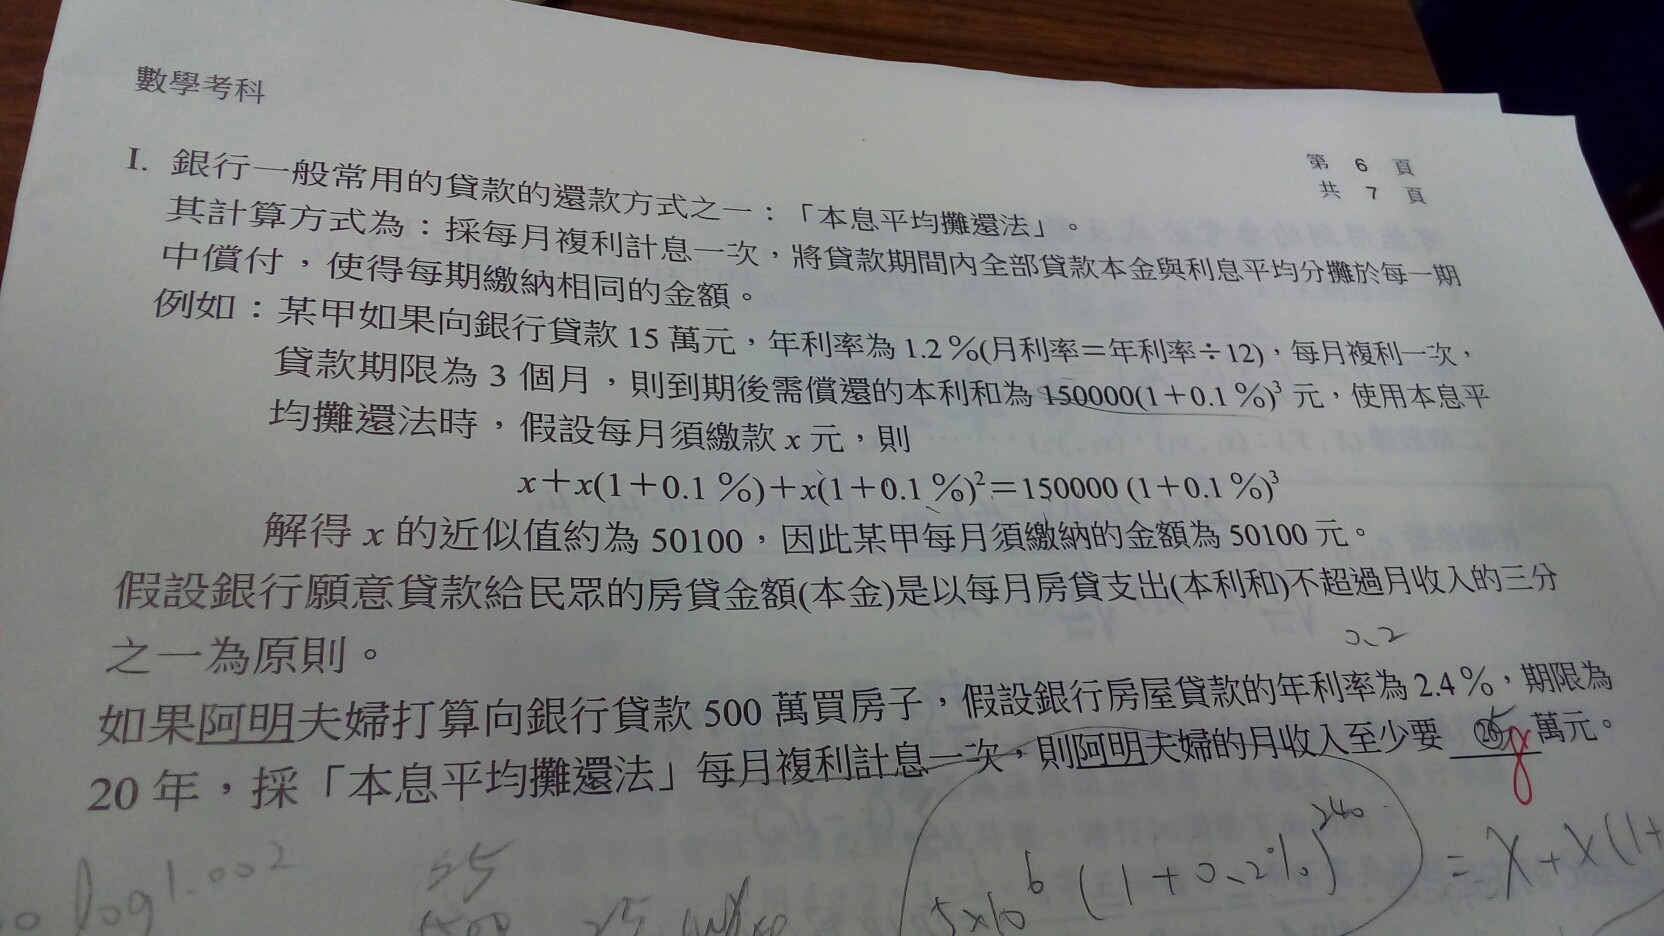 數學考科
第 6 頁
共 7 頁
I. 銀行一般常用的貸款的還款方式之一：「本息平均攤還法」。
其計算方式為：採每月複利計息一次，將貸款期間內全部貸款本金與利息平均分攤於每一期
中償付，使得每期繳納相同的金額。
例如：某甲如果向銀行貸款 15 萬元，年利率為 1.2 %(月利率＝年利率÷12)，每月複利一次，
貸款期限為 3 個月，則到期後需償還的本利和為 150000(1＋0.1 %)³ 元，使用本息平
均攤還法時，假設每月須繳款 x 元，則
x＋x(1＋0.1 %)＋x(1＋0.1 %)²＝150000 (1＋0.1 %)³
解得 x 的近似值約為 50100，因此某甲每月須繳納的金額為 50100 元。
假設銀行願意貸款給民眾的房貸金額(本金)是以每月房貸支出(本利和)不超過月收入的三分
之一為原則。
0.2
如果阿明夫婦打算向銀行貸款 500 萬買房子，假設銀行房屋貸款的年利率為 2.4 %，期限為
20 年，採「本息平均攤還法」每月複利計息一次，則阿明夫婦的月收入至少要 ㉖ 8 萬元。
log1.002
5×10⁶ (1+0.2%)²⁴⁰ = x + x(1+